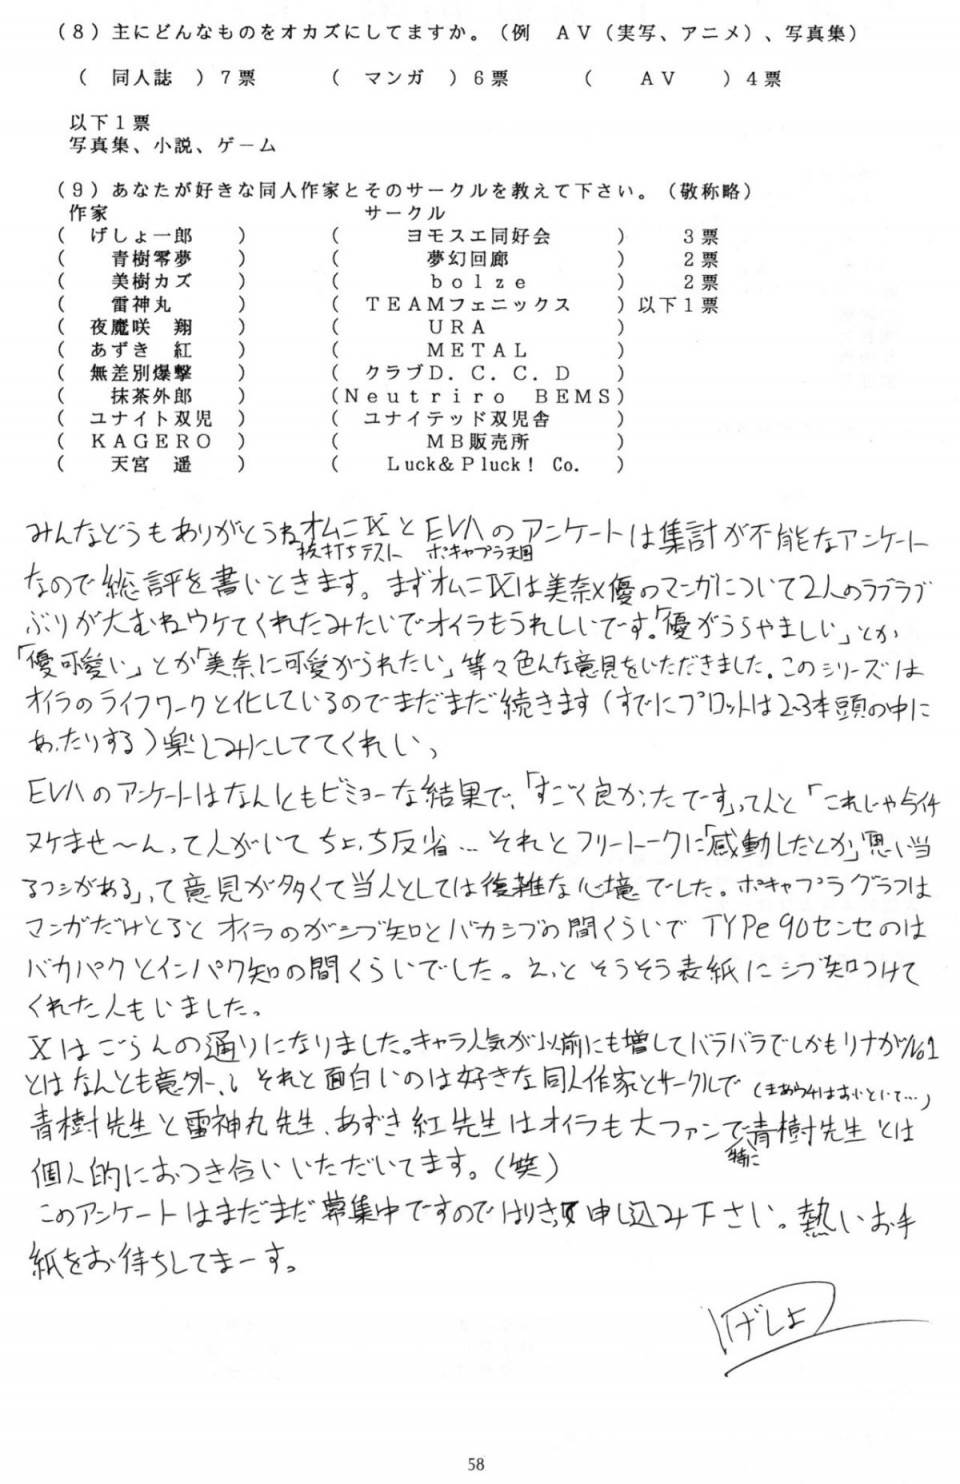 (8)主にどんなものをオカズにしてますか。(例　AV(実写、アニメ)、写真集)
(　同人誌　)7票　(　マンガ　)6票　(　AV　)4票
以下1票
写真集、小説、ゲーム
(9)あなたが好きな同人作家とそのサークルを教えて下さい。(敬称略)
作家　サークル
(　げしょ一郎　)　(　ヨモスエ同好会　)　3票
(　青樹零夢　)　(　夢幻回廊　)　2票
(　美樹カズ　)　(　bolze　)　2票
(　雷神丸　)　(　TEAMフェニックス　)以下1票
(　夜魔咲　翔　)　(　URA　)
(　あずき　紅　)　(　METAL　)
(　無差別爆撃　)　(　クラブD．C．C．D　)
(　抹茶外郎　)　(Neutriro　BEMS)
(　ユナイト双児　)　(　ユナイテッド双児舎　)
(　KAGERO　)　(　MB販売所　)
(　天宮　遥　)　(　Luck&Pluck！Co.　)
みんなどうもありがとうねオムニⅨとEVAのアンケートは集計が不能なアンケート
抜打ちテスト　ボキャブラ天国
なので総評を書いときます。まずオムニⅨは美奈×優のマンガについて2人のラブラブ
ぶりが大むねウケてくれたみたいでオイラもうれしいです。「優がうらやましい」とか
「優可愛い」とか「美奈に可愛がられたい」等々色んな意見をいただきました。このシリーズは
オイラのライフワークと化しているのでまだまだ続きます(すでにプロットは2~3本頭の中に
あったりする)楽しみにしててくれい。
EVAのアンケートはなんともビミョーな結果で、「すごく良かったです」って人と「これじゃ今イチ
ヌケませ～ん」って人がいてちょっち反省…それとフリートークに「感動したとか」「思い当
るフシがある」って意見が多くて当人としては複雑な心境でした。ボキャブラグラフは
マンガだけとるとオイラのがシブ知とバカシブの間くらいでTYPe90センセのは
バカパクとインパク知の間くらいでした。えっとそうそう表紙にシブ知つけて
くれた人もいました。
Ⅹはごらんの通りになりました。キャラ人気が以前にも増してバラバラでしかもリナがNo1
とはなんとも意外、、それと面白いのは好きな同人作家とサークルで(まあウチはおいといて…)
青樹先生と雷神丸先生、あずき紅先生はオイラも大ファンで特に青樹先生とは
個人的におつき合いいただいてます。(笑)
このアンケートはまだまだ募集中ですのではりきって申し込み下さい。熱いお手
紙をお待ちしてまーす。
げしょ
58